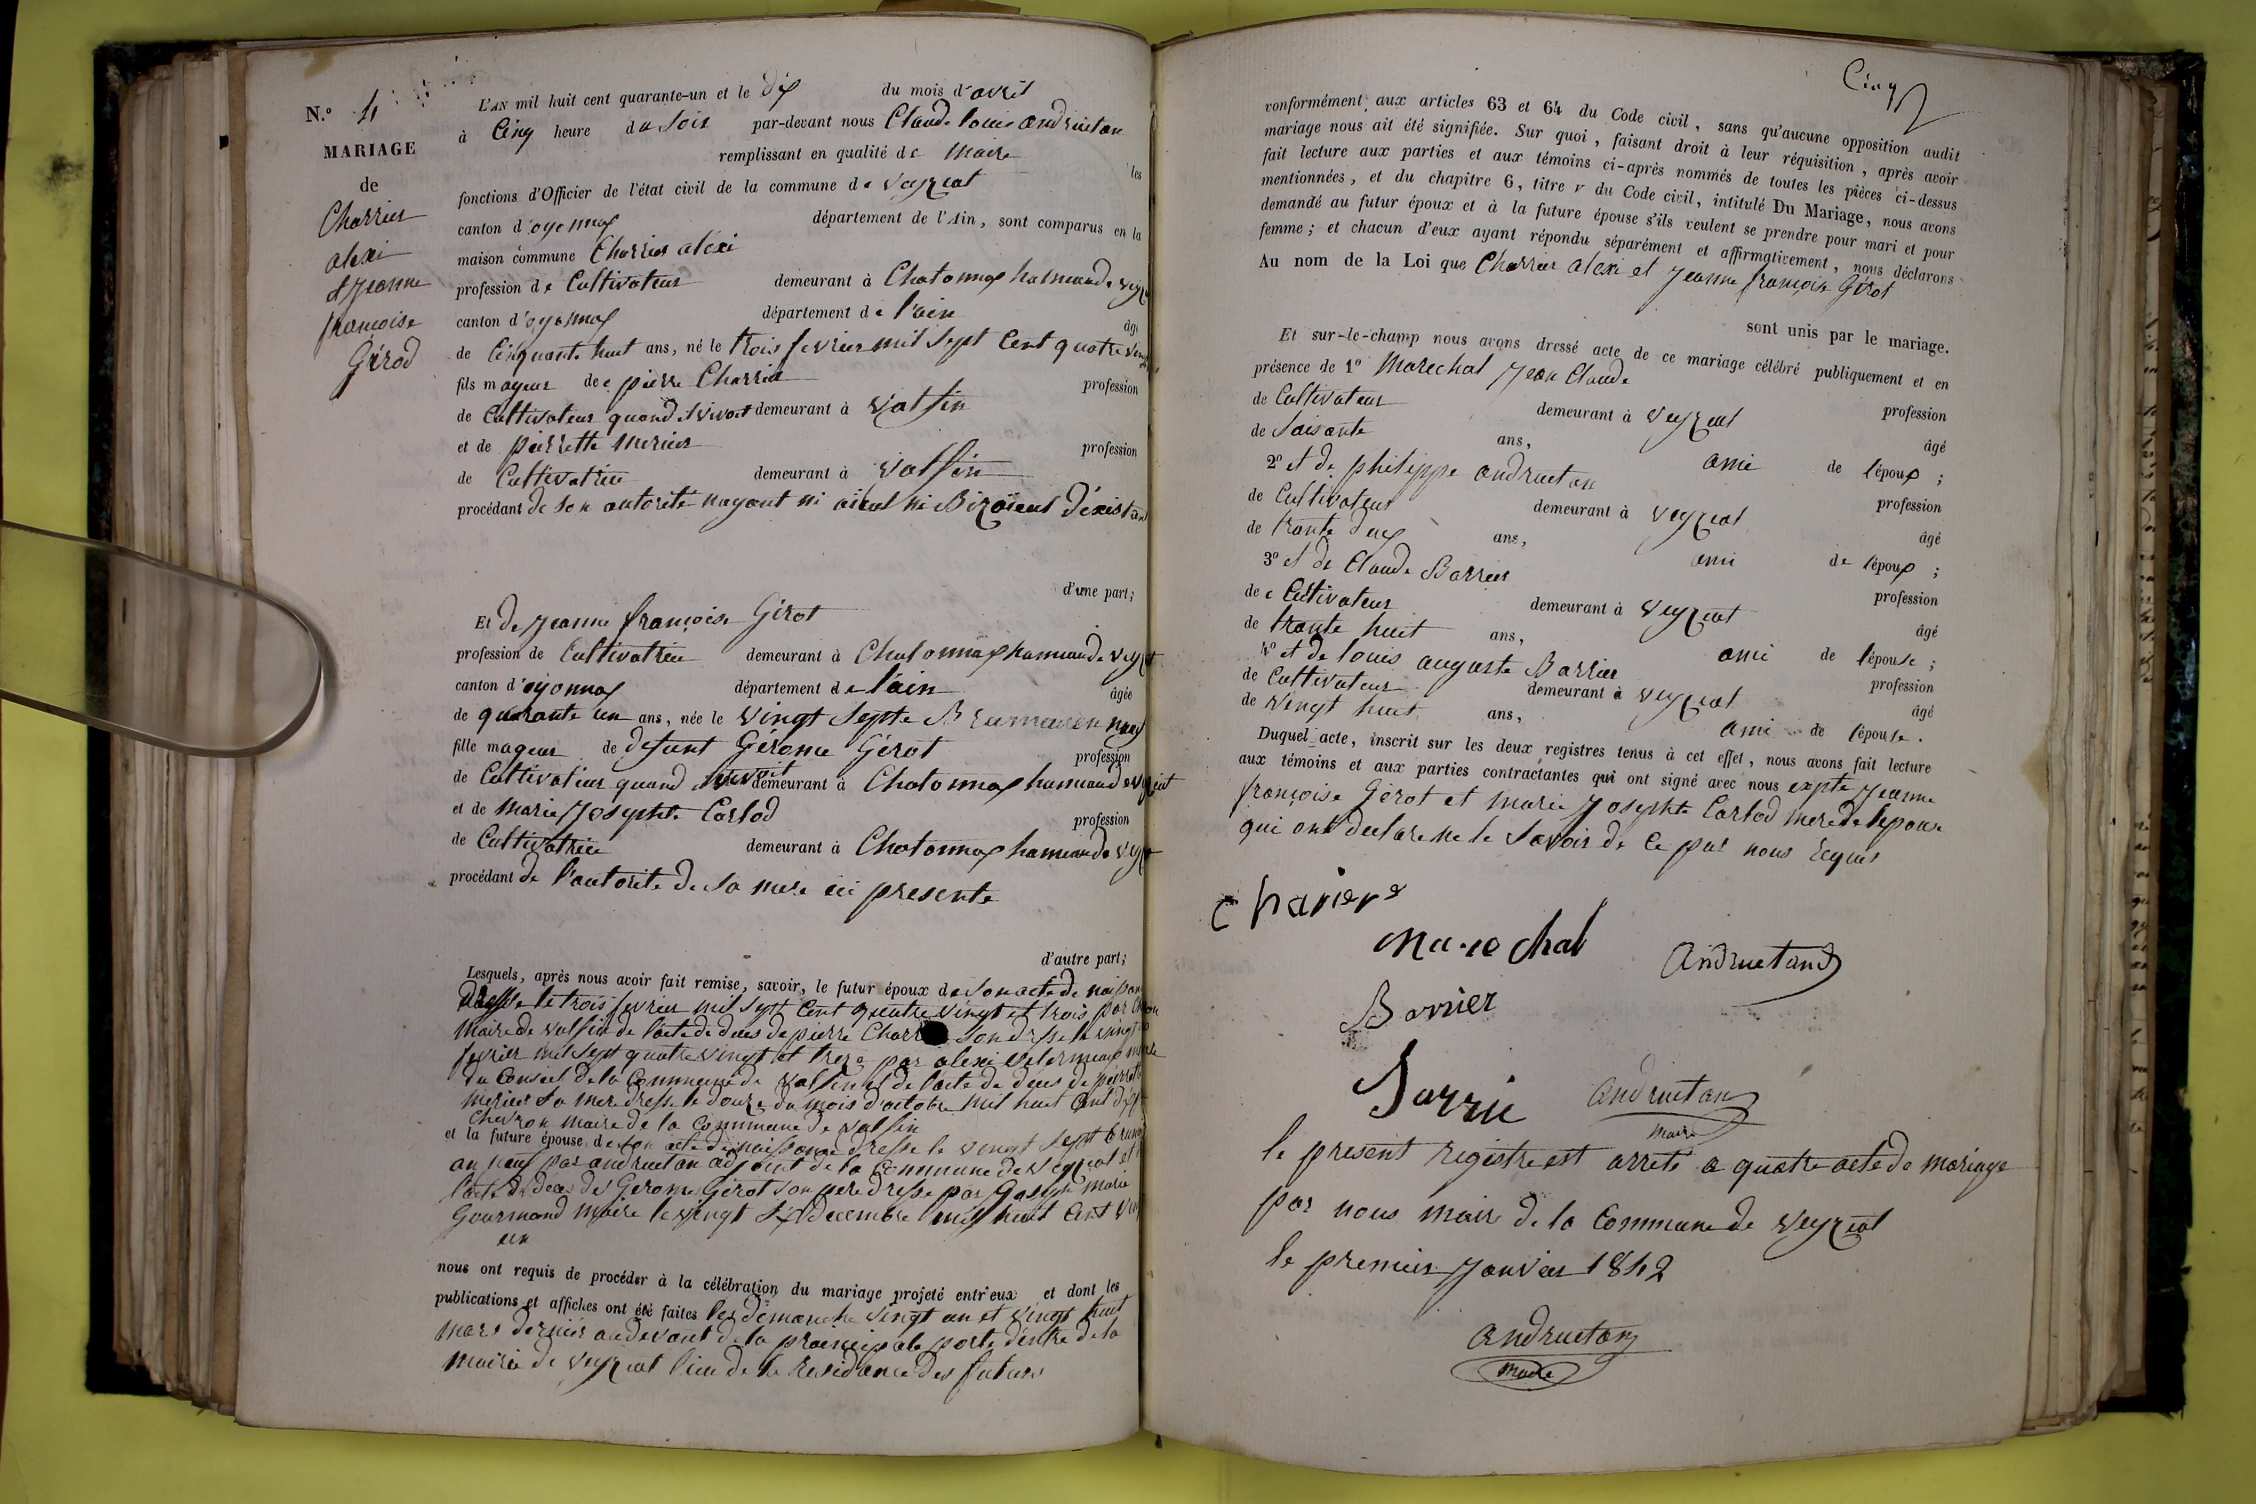 N.° 4
MARIAGE
de
Charrier
alexi
et Jeanne
françoise
Gérod
L'AN mil huit cent quarante-un et le dix du mois d'avril
à Cinq heure du Soir par-devant nous Claude louis andruetan
remplissant en qualité de Maire les
fonctions d'Officier de l'état civil de la commune de veyziat
canton d'oyonnax département de l'Ain, sont comparus en la
maison commune Charrier alexi
profession de Cultivateur demeurant à Chatonnax hameaude veyz
canton d'oyonnax département de l'ain âgé
de Cinquante huit ans, né le trois fevrier mil Sept Cent quatre vingt
fils mageur de pierre Charrier profession
de Cultivateur quand il vivoit demeurant à Valfin
et de pierrette merier profession
de Cultivatrice demeurant à valfin
procédant de Son autorité nayant ni aieul ni Bizaieul d'éxistant
d'une part;
Et de Jeanne françoise Gérot
profession de Cultivatrice demeurant à Chatonnax hameaude veyz
canton d'oyonnax département de l'ain âgée
de quarante un ans, née le vingt Septe Brumaire an neuf
fille mageur de defunt Gérome Gérot profession
de Cultivateur quand il vivoit demeurant à Chatonnax hameaude veyziat
et de marie Josephte Carlod profession
de Cultivatrice demeurant à Chatonnax hameaude veyz
procédant de l'autorité de Sa mere ici presente
d'autre part;
Lesquels, après nous avoir fait remise, savoir, le futur époux de Son acte de naissance
dressé le trois fevrier mil Sept Cent quatre vingt et trois par
Maire de valfin de l'acte de deces de pierre Charrier Son dressé le vingt
fevrier mil Sept quatre vingt et treze par alexi
du Conseil de la Commune de valfin et de l'acte de deces de pierrette
merier Sa mere dressé le douze du mois d'octobre mil huit Cent dix
Chevron maire de la Commune de valfin
et la future épouse de Son acte de naissance dressé le vingt Sept brumaire
an neuf par andruetan adjoint de la Commune de veyziat et
l'acte de deces de Gerome Gérot Son pere dressé par Joseph marie
Gourmand Maire le vingt Six decembre mil huit Cent vingt
un
nous ont requis de procéder à la célébration du mariage projeté entr'eux et dont les
publications et affiches ont été faites les demanche vingt un et vingt huit
mars dernier audevant de la principale porte d'entre de la
mairie de veyziat lieu de la Residance des futurs
Cinq
conformément aux articles 63 et 64 du Code civil, sans qu'aucune opposition audit
mariage nous ait été signifiée. Sur quoi, faisant droit à leur réquisition, après avoir
fait lecture aux parties et aux témoins ci-après nommés de toutes les pièces ci-dessus
mentionnées, et du chapitre 6, titre V du Code civil, intitulé Du Mariage, nous avons
demandé au futur époux et à la future épouse s'ils veulent se prendre pour mari et pour
femme; et chacun d'eux ayant répondu séparément et affirmativement, nous déclarons
Au nom de la Loi que Charrier alexi et Jeanne françoise Gérot
sont unis par le mariage.
Et sur-le-champ nous avons dressé acte de ce mariage célébré publiquement et en
présence de 1° Marechal Jean Claude profession
de Cultivateur demeurant à veyziat âgé
de Soisante ans, ami de l'époux;
2° et de philippe andruetan profession
de Cultivateur demeurant à veyziat âgé
de trante deux ans, ami de l'époux;
3° et de Claude Barrier profession
de Cultivateur demeurant à veyziat âgé
de trante huit ans, ami de l'épouse;
4° et de louis auguste Barrier profession
de Cultivateur demeurant à veyziat âgé
de vingt huit ans, ami de l'épouse.
Duquel acte, inscrit sur les deux registres tenus à cet effet, nous avons fait lecture
aux témoins et aux parties contractantes qui ont signé avec nous expte Jeanne
françoise Gérot et marie Josephte Carlod mere de lepouse
qui ont declare ne le Savoir de Ce par nous Requis
Chariere
Marechal
Andruetand
Barrier
Barrie
andruetan
maire
le present registre est arreté a quatre acte de mariage
par nous maire de la Commune de veyziat
le premier Janvier 1842
andruetan
maire